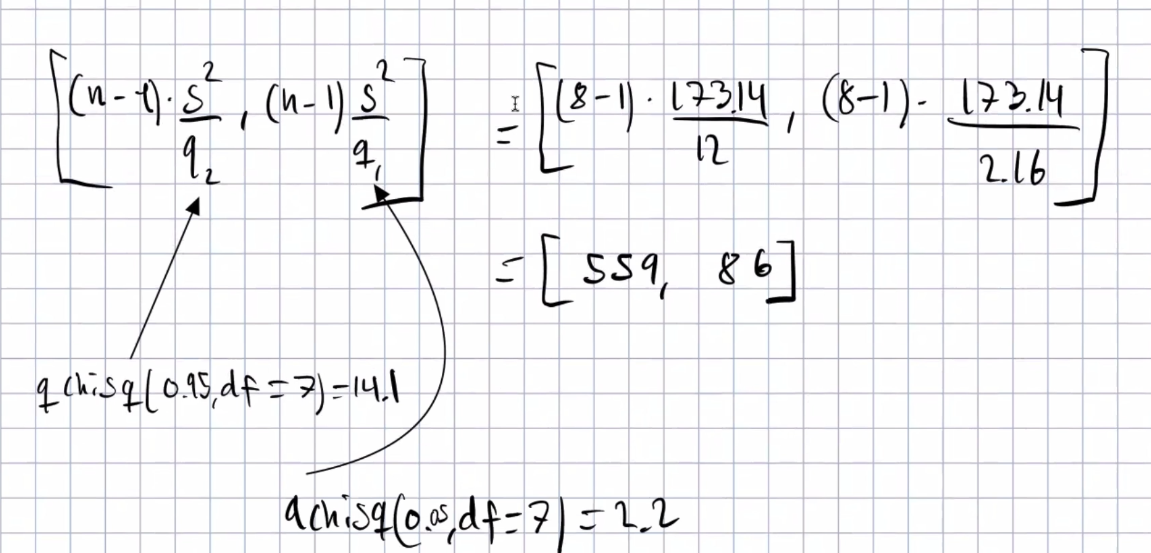 [(n-1)·s²/q₂, (n-1)s²/q₁] = [(8-1)·173.14/12, (8-1)·173.14/2.16]
= [559, 86]
qchisq(0.95,df=7)=14.1
qchisq(0.05,df=7)=2.2